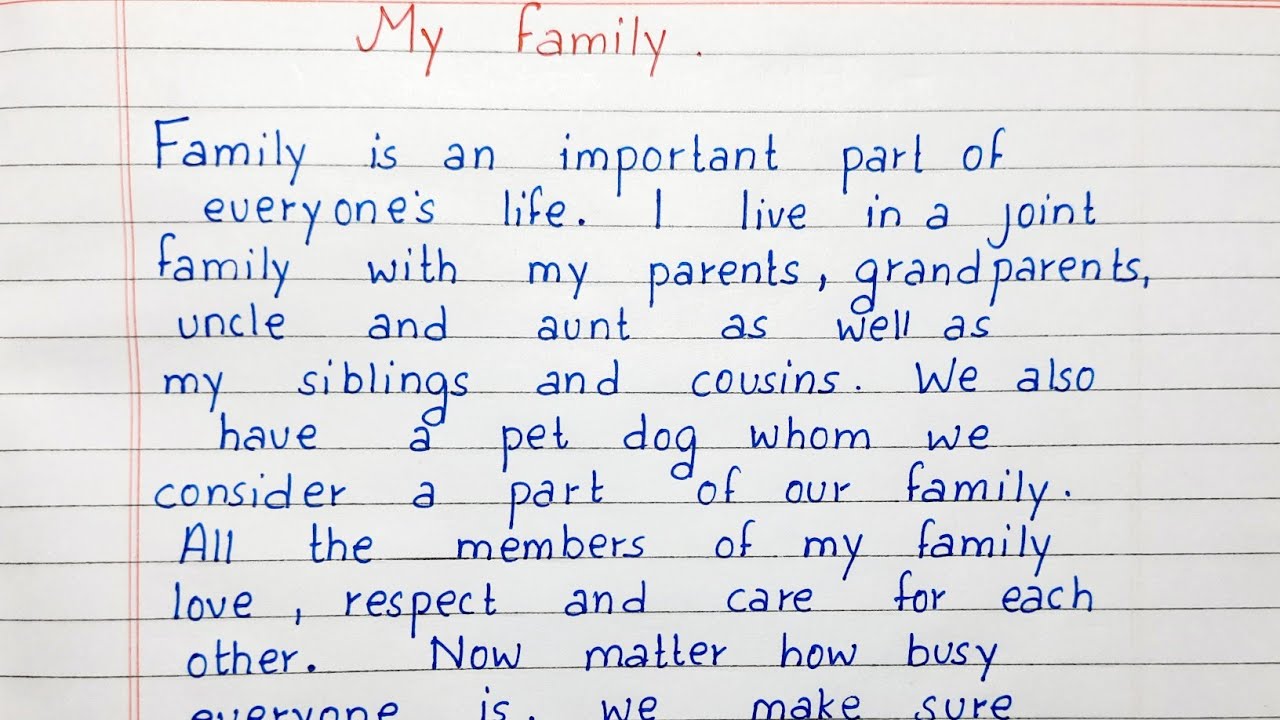 My family.
Family is an important part of
everyone's life. I live in a joint
family with my parents, grandparents,
uncle and aunt as well as
my siblings and cousins. We also
have a pet dog whom we
consider a part of our family.
All the members of my family
love, respect and care for each
other. Now matter how busy
everyone is. we make sure